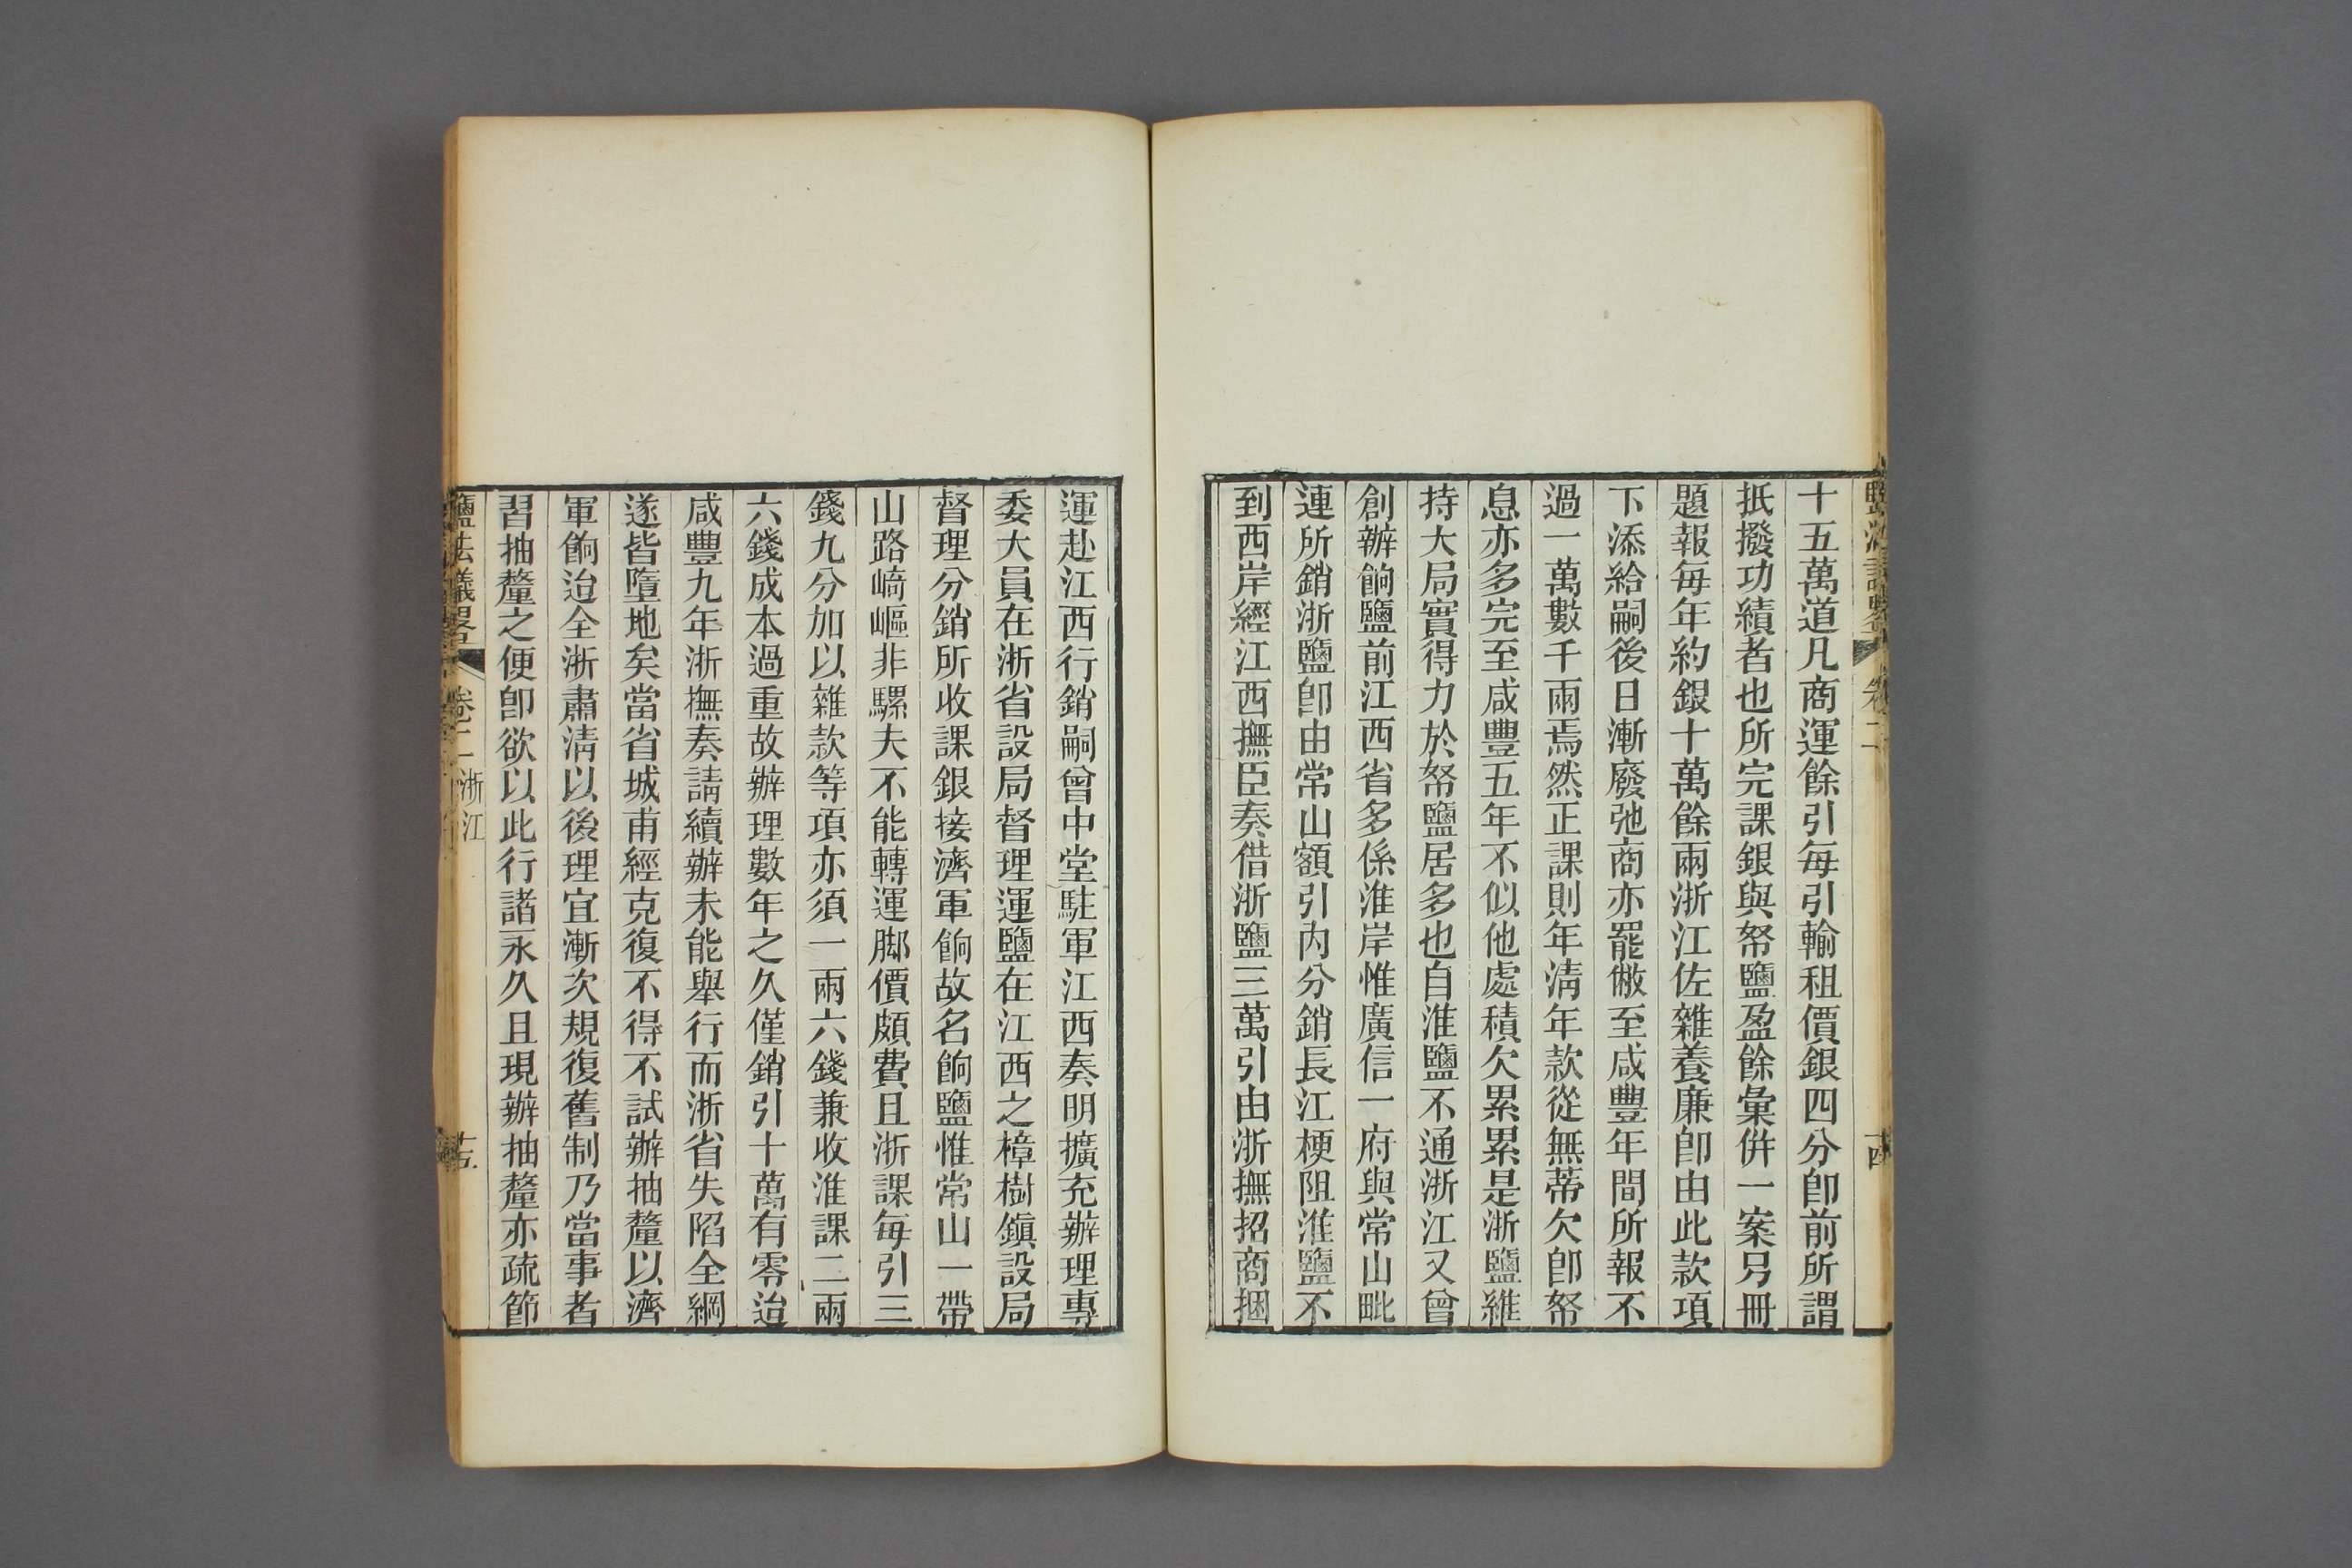 十五萬道凡商運餘引每引輸租價銀四分卽前所謂
扺撥功績者也所完課銀與帑鹽盈餘彙併一案另冊
題報每年約銀十萬餘兩浙江佐雜養廉卽由此款項
下添給嗣後日漸廢弛商亦罷懒至咸豐年間所報不
過一萬數千兩焉然正課則年淸年款從無蒂欠卽帑
息亦多完至咸豐五年不似他處積欠累累是浙鹽維
持大局實得力於帑鹽居多也自淮鹽不通浙江又曾
創辦餉鹽前江西省多係淮岸惟廣信一府與常山毗
連所銷浙鹽卽由常山額引內分銷長江梗阻淮鹽不
到西岸經江西撫臣奏借浙鹽三萬引由浙撫招商捆
卷二
十四
運赴江西行銷嗣曾中堂駐軍江西奏明擴充辦理專
委大員在浙省設局督理運鹽在江西之樟樹鎭設局
督理分銷所收課銀接濟軍餉故名餉鹽惟常山一帶
山路崎嶇非騾夫不能轉運脚價頗費且浙課每引三
錢九分加以雜款等項亦須一兩六錢兼收淮課二兩
六錢成本過重故辦理數年之久僅銷引十萬有零迨
咸豐九年浙撫奏請續辦未能舉行而浙省失陷全綱
遂皆墮地矣當省城甫經克復不得不試辦抽釐以濟
軍餉迨全浙肅淸以後理宜漸次規復舊制乃當事者
習抽釐之便卽欲以此行諸永久且現辦抽釐亦疏節
鹽法議畧
卷二 浙江
十五